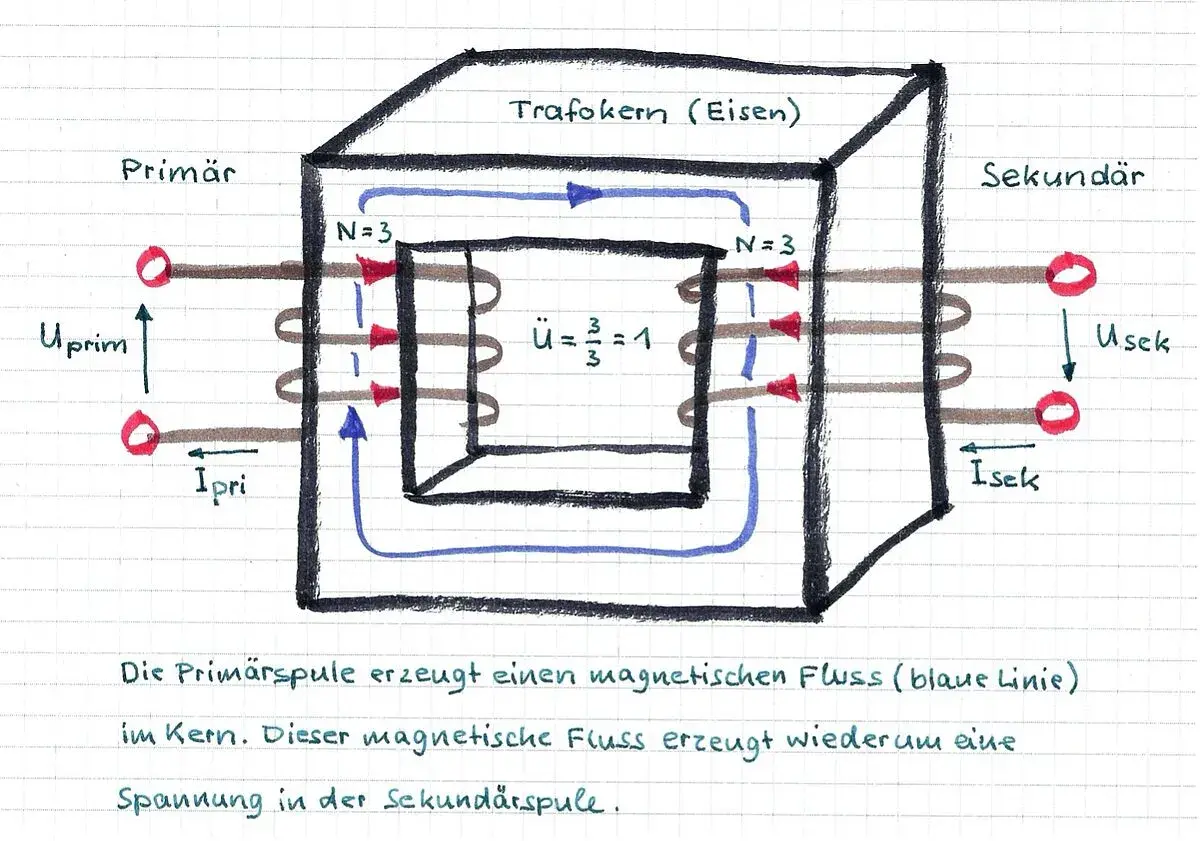 Trafokern (Eisen)
Primär
Sekundär
N=3
N=3
Uprim
Ü = 3/3 = 1
Usek
Ipri
Isek
Die Primärspule erzeugt einen magnetischen Fluss (blaue Linie)
im Kern. Dieser magnetische Fluss erzeugt wiederum eine
Spannung in der Sekundärspule.